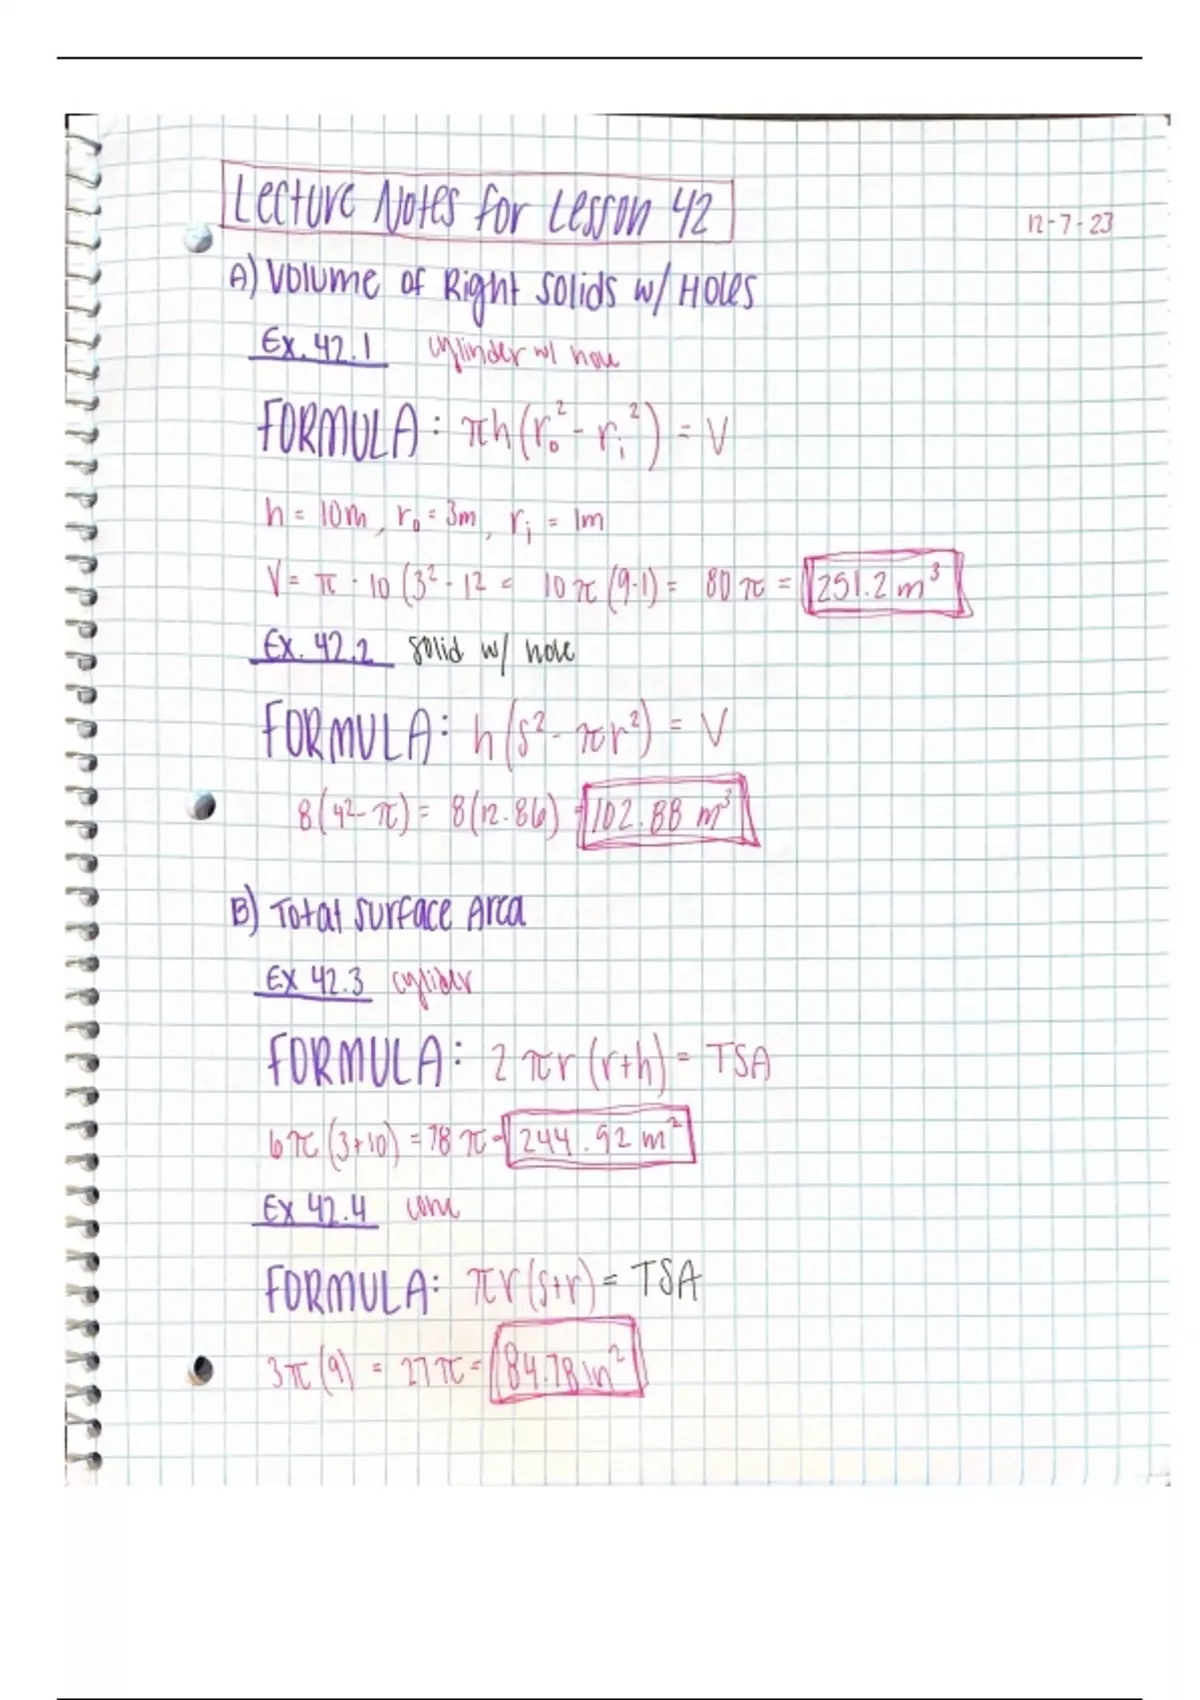 Lecture Notes for Lesson 42
12-7-23
A) Volume of Right Solids w/ Holes
Ex. 42.1 cylinder w/ hole
FORMULA: πh(r₀² - rᵢ²) = V
h = 10m, r₀ = 3m, rᵢ = 1m
V = π · 10 (3² - 12 = 10π (9-1) = 80π = 251.2 m³
Ex. 42.2 solid w/ hole
FORMULA: h(s² - πr²) = V
8(4² - π) = 8(12.86) = 102.88 m³
B) Total Surface Area
Ex 42.3 cylider
FORMULA: 2πr(r+h) = TSA
6π(3+10) = 78π = 244.92 m²
Ex 42.4 cone
FORMULA: πr(s+r) = TSA
3π(9) = 27π = 84.78 in²